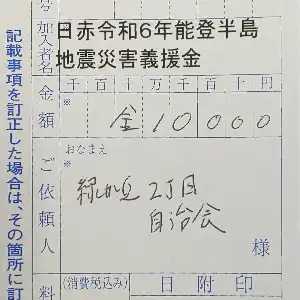 記載事項を訂正した場合は、その箇所に訂
号
加入者名
日赤令和6年能登半島
地震災害義援金
金額
千百十万千百十円
※
金10000
ご依頼人
おなまえ
※
緑が丘2丁目
自治会
様
料
(消費税込み)
日附印